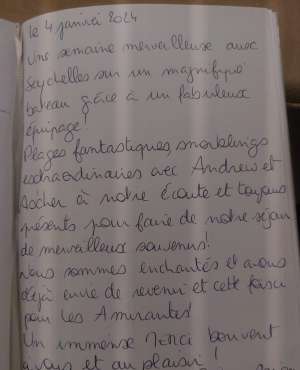 le 4 janvier 2024
Une semaine merveilleuse aux
Seychelles sur un magnifique
bateau grâce à un fabuleux
équipage!
Plages fantastiques, snorklings
extraordinaires avec Andreis et
à notre écoute et toujours
présents pour faire de notre séjour
de merveilleux souvenirs!
Nous sommes enchantés et avons
déjà envie de revenir et cette fois
pour les Amirantes!
Un immense Merci
à vous et au plaisir!